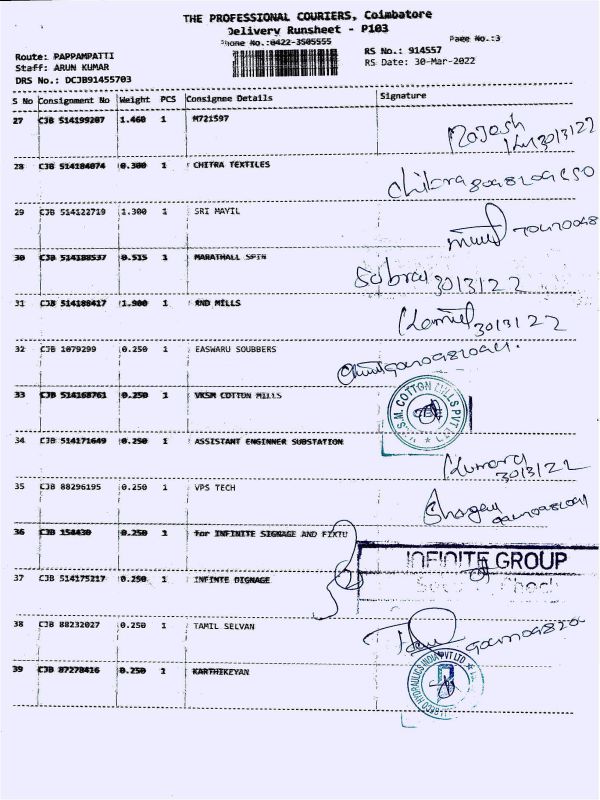 THE PROFESSIONAL COURIERS, Coimbatore
Delivery Runsheet - P103
Phone No.:0422-3505555
Page No.:3
Route: PAPPAMPATTI
RS No.: 914557
Staff: ARUN KUMAR
RS Date: 30-Mar-2022
DRS No.: DCJB91455703
S No Consignment No Weight PCS Consignee Details Signature
27 CJB 514199207 1.460 1 M721597
Rajesh
30/3/22
28 CJB 514184074 0.300 1 CHITRA TEXTILES
Chitra
29 CJB 514122719 1.300 1 SRI MAYIL
30 CJB 514188537 0.515 1 MARATHALL SPIN
30/3/22
31 CJB 514188417 1.900 1 RND MILLS
30/3/22
32 CJB 1079299 0.250 1 EASWARU SOUBBERS
33 CJB 514168761 0.250 1 VKSM COTTON MILLS
S.M. COTTON MILLS PVT
34 CJB 514171649 0.250 1 ASSISTANT ENGINNER SUBSTATION
Kumara
30/3/22
35 CJB 88296195 0.250 1 VPS TECH
36 CJB 154430 0.250 1 for INFINITE SIGNAGE AND FIXTU
INFINITE GROUP
37 CJB 514175217 0.250 1 INFINTE DIGNAGE
38 CJB 88232027 0.250 1 TAMIL SELVAN
39 CJB 87278416 0.250 1 KARTHIKEYAN
HYDRAULICS INDIA PVT LTD